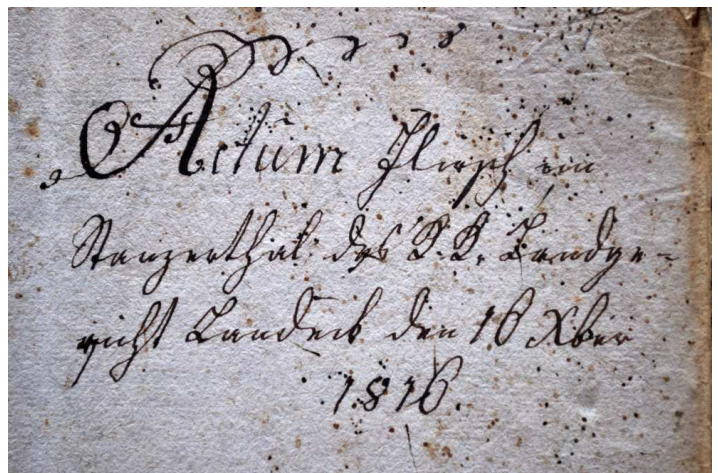 Actum Flirsch im
Stanzerthal des K. K. Landge-
richt Landeck den 16 Xber
1816.